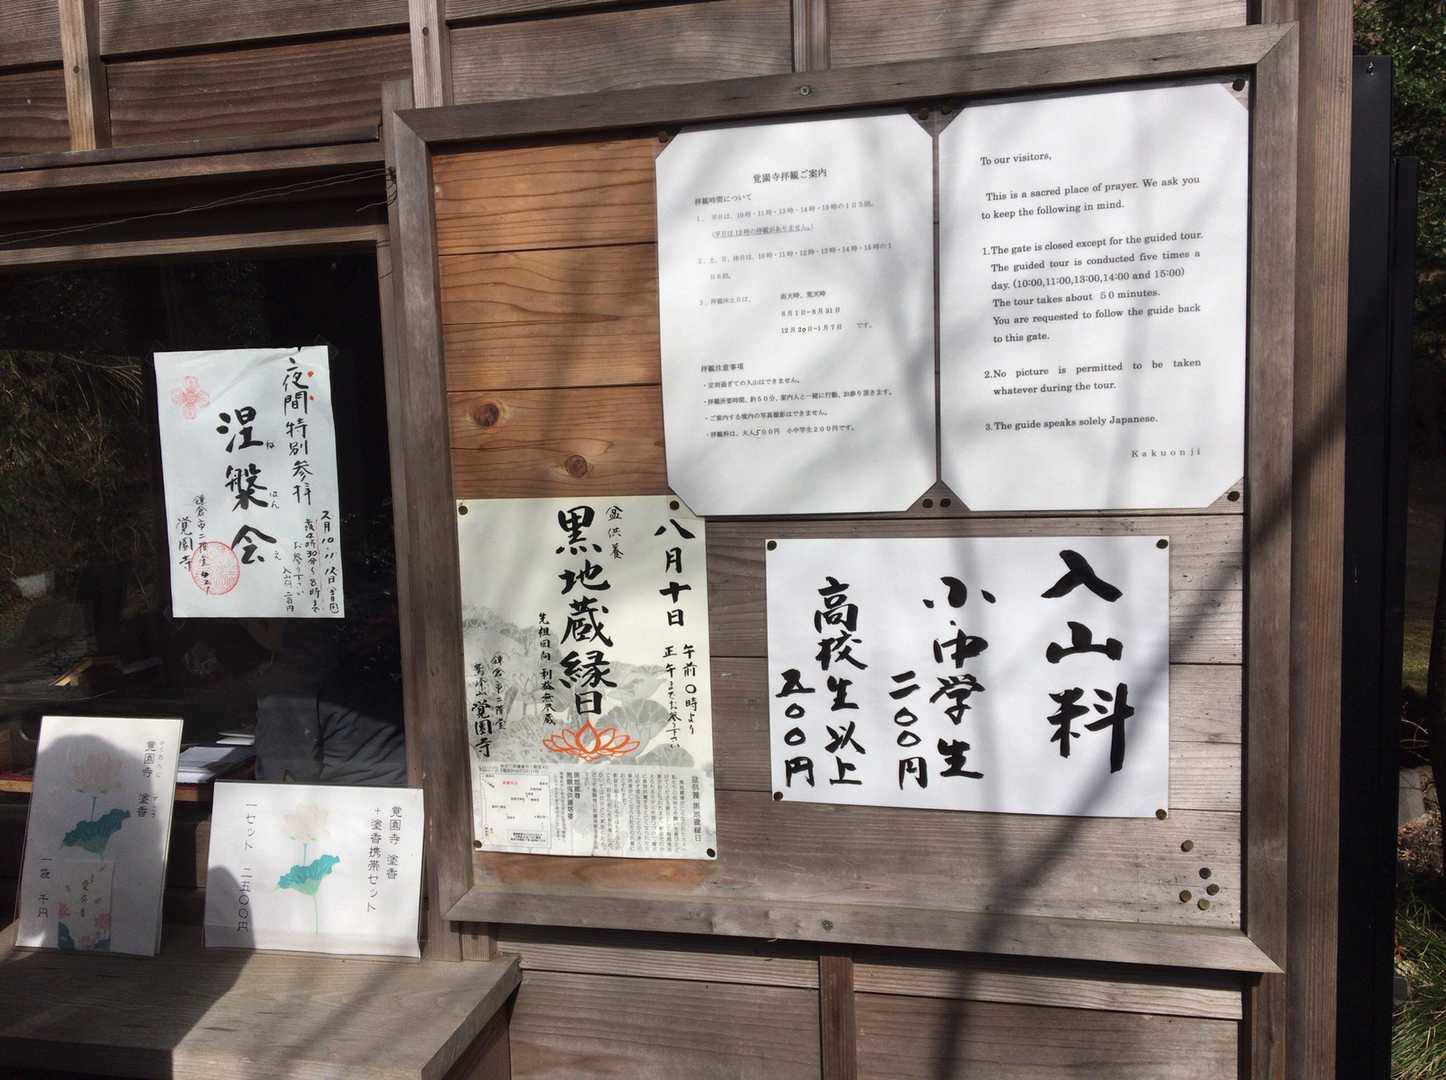 覚園寺拝観ご案内
拝観時間について
1、平日は、10時・11時・13時・14時・15時の1日5回。
(平日は12時の拝観がありません。)
2、土、日、祝日は、10時・11時・12時・13時・14時・15時の1
日6回。
3、拝観休止日は、 雨天時、荒天時
8月1日~8月31日
12月20日~1月7日 です。
拝観注意事項
・定刻過ぎての入山はできません。
・拝観所要時間、約50分、案内人と一緒に行動、お参り頂きます。
・ご案内する境内の写真撮影はできません。
・拝観料は、大人500円 小中学生200円です。
To our visitors,
This is a sacred place of prayer. We ask you
to keep the following in mind.
1.The gate is closed except for the guided tour.
The guided tour is conducted five times a
day. (10:00,11:00,13:00,14:00 and 15:00)
The tour takes about 50 minutes.
You are requested to follow the guide back
to this gate.
2.No picture is permitted to be taken
whatever during the tour.
3.The guide speaks solely Japanese.
Kakuonji
入山料
小中学生
二〇〇円
高校生以上
五〇〇円
八月十日
午前〇時より
正午までお参り下さい
盆供養
黒地蔵縁日
先祖回向 利益無尽蔵
鎌倉市二階堂
鷲峰山 覚園寺
盆供養 黒地蔵縁日
夜間特別参拝
2月10・11・12日
夜4時30分~8時まで
お参り下さい
入山料 二百円
涅槃会
ねはんえ
鎌倉市二階堂421
覚園寺
かくおんじ
覚園寺 塗香
一袋 千円
覚園寺 塗香
+塗香携帯セット
一セット 二五〇〇円